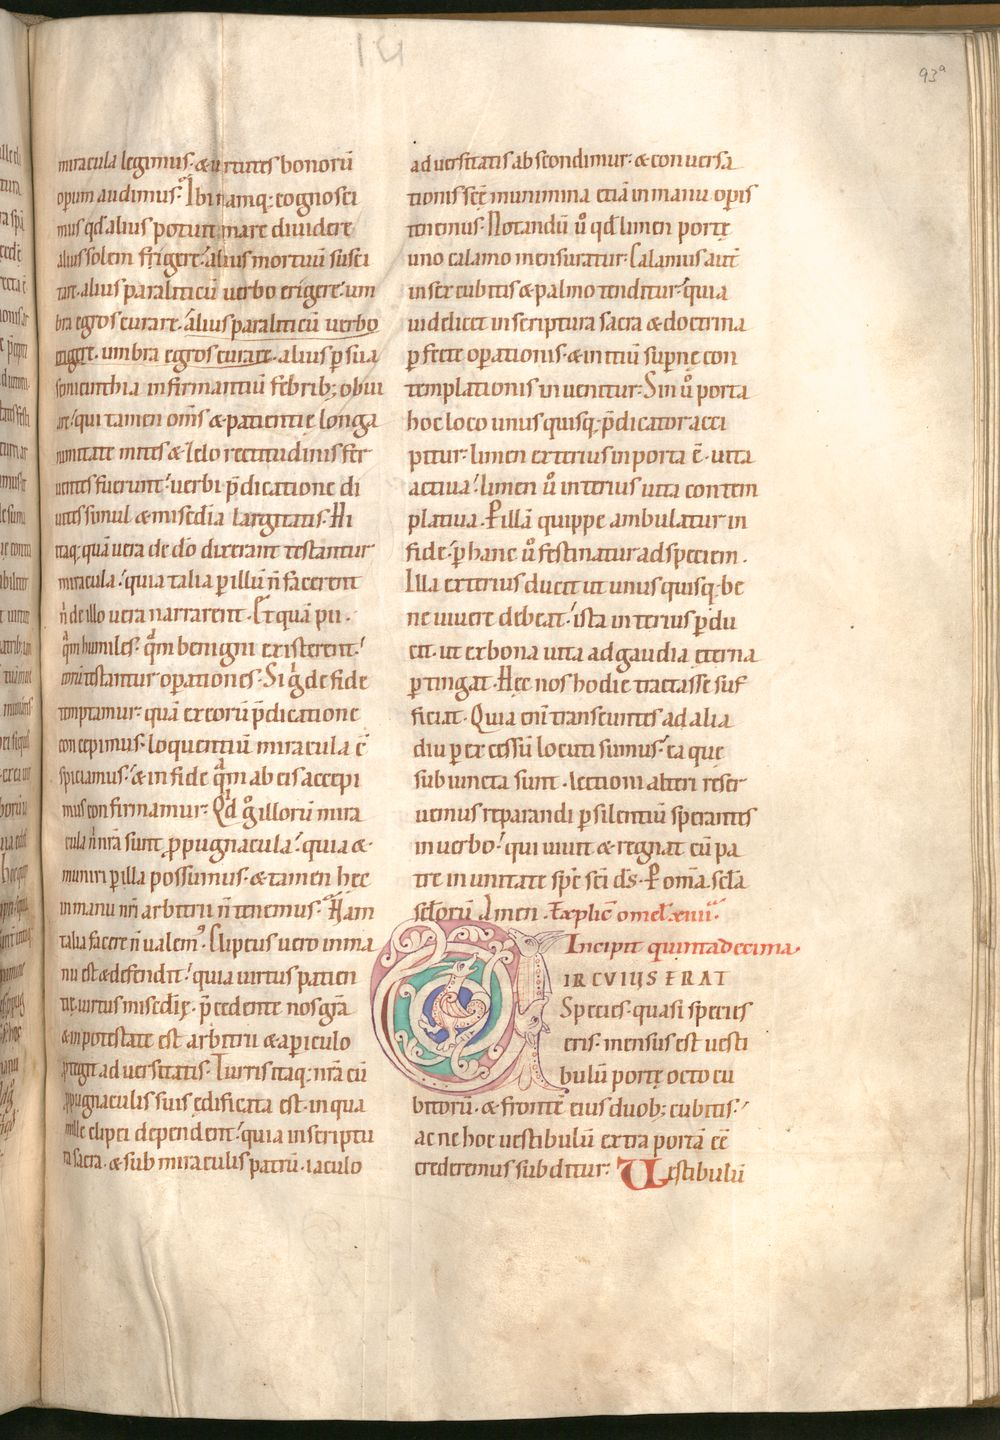 93a
miracula legimus. & uirtutes bonorū
opum audimus. Ibi namq; cognosci
mus qđ alius potuit mare diuidere
alius solem frigere. alius mortuū susci
tare. alius paraliticū uerbo erigere. um
bra egros curare. alius paraliticū uerbo
erigere. umbra egros curare. alius p sua
semicinthia infirmantiū febrib; obui
are. qui tamen om̄s & patientie longa
nimitate mites & zelo rectitudinis fer
uentes fuerunt. uerbi p̄dicatione di
uites simul & misedīa largitatis. Hi
itaq; quā uera de dō dixerant testantur
miracula. quia talia p illū n̄ facerent
n̄ de illo uera narrarent. Et quā pii.
qm̄ humiles. qm̄ benigni existerent.
eorū testantur opationes. Si g de fide
temptamur. quā ex eorū p̄dicatione
concepimus. loquentiū miracula c̄
spiciamus. & in fide qm̄ ab eis accepi
mus confirmamur. Qd g illorū mira
cula n̄ nr̄a sunt ppugnacula. quia &
muniri p illa possumus. & tamen hec
in manu nr̄i arbitrii n̄ tenemus. Nam
talia facere n̄ ualem. Clipeus uero in ma
nu est & defendit. quia uirtus patien
tie. uirtus misedīę. p̄cedente nos gr̄a
& in potestate est arbitrii & a piculo
ptegit aduersitatis. Turris itaq; nr̄a cū
ppugnaculis suis ędificata est. in qua
mille clipei dependent. quia in scriptu
ra sacra. & sub miraculis patrū. iaculo
aduersitatis abscondimur. & conuersa
tionis scē munimina etiā in manu opis
tenemus. Notandū u° qđ limen portę
uno calamo mensuratur. Calamus aut̄
in sex cubitis & palmo tenditur. quia
uidelicet in scriptura sacra & doctrina
pfecte opationis. & initiū supne con
templationis inuenitur. Sin u° porta
hoc loco unus quisq; p̄dicator acci
pitur. limen exterius in porta ē. uita
actiua. limen u° interius uita contem
platiua. P illā quippe ambulatur in
fide. p hanc u° festinatur ad speciem.
Illa exterius ducit ut unus quisq; be
ne uiuere debeat. ista interius pdu
cit. ut ex bona uita ad gaudia ęterna
ptingat. Hęc nos hodie tractasse suf
ficiat. Quia enī transeuntes ad alia
diu p excessū locuti sumus. ea que
subiuncta sunt. lectioni alteri reser
uemus reparandi p silentiū sperantes
in uerbo. qui uiuit & regnat cū pa
tre in unitate spc̄ sc̄i ds̄. P om̄a scl̄a
scl̄orū Amen. Explic̄ omel̄. xiiii.
Incipit quintadecima.
CIRCUIUS FRAT
Species. quasi species
eris. mensus est uesti
bulū portę octo cu
bitorū. & frontē eius duob; cubitis.
ac ne hoc uestibulū extra portā eē
crederemus subditur. Uestibulū